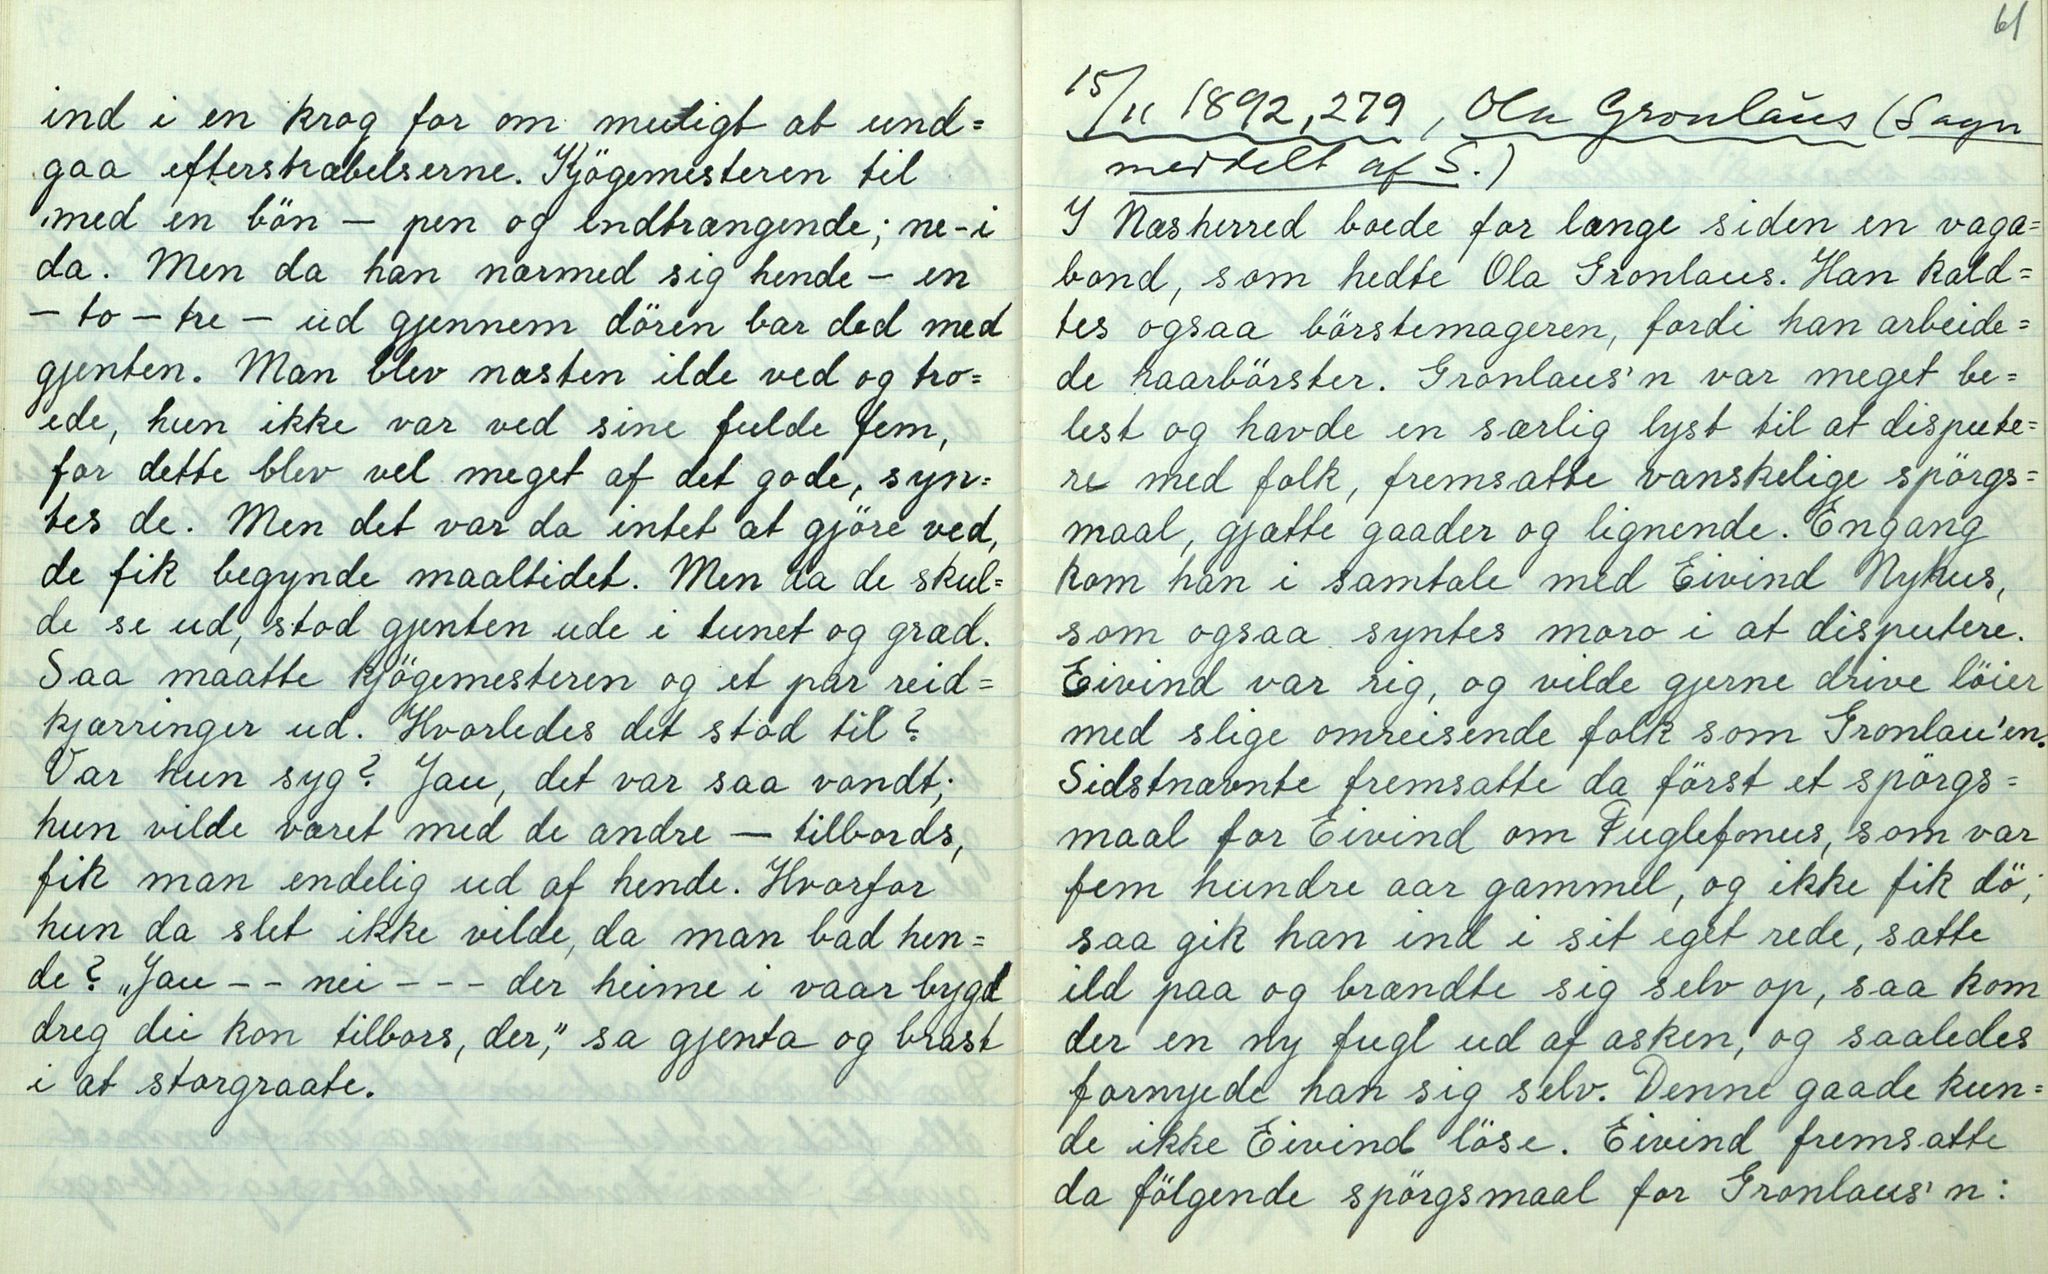 ind i en krog for om muligt at und=
gaa efterstræbelserne. Kjögemesteren til
med en bön – pen og indtrængende; ne-i
da. Men da han nærmed sig hende – en
– to – tre – ud gjennem dören bar ded med
gjenten. Man blev næsten ilde ved og tro=
ede, hun ikke var ved sine fulde fem,
for dette blev vel meget af det gode, syn=
tes de. Men det var da intet at gjöre ved,
de fik begynde maaltidet. Men da de skul=
de se ud, stod gjenten ude i tunet og græd.
Saa maatte kjögemesteren og et par reid=
kjærringer ud. Hvorledes det stod til?
Var hun syg? Jau, det var saa vondt;
hun vilde været med de andre – tilbords,
fik man endelig ud af hende. Hvorfor
hun da slet ikke vilde, da man bad hen=
de? „Jau – – nei – – – der heime i vaar bygd
dreg dei kon tilbors, der,“ sa gjenta og brast
i at storgraate.
61
15/11 1892, 279, Ola Gronlaus (Sagn
meddelt af S.)
I Næsherred boede for længe siden en vaga=
bond, som hedte Ola Gronlaus. Han kald=
tes ogsaa börstemageren, fordi han arbeide=
de haarbörster. Gronlaus'n var meget be=
lest og havde en særlig lyst til at dispute=
re med folk, fremsatte vanskelige spörgs=
maal, gjætte gaader og lignende. Engang
kom han i samtale med Eivind Nykus,
som ogsaa syntes moro i at disputere.
Eivind var rig, og vilde gjerne drive löier
med slige omreisende folk som Gronlau'en.
Sidstnævnte fremsatte da först et spörgs=
maal for Eivind om Fuglefonus, som var
fem hundre aar gammel, og ikke fik dö;
saa gik han ind i sit eget rede, satte
ild paa og brændte sig selv op, saa kom
der en ny fugl ud af asken, og saaledes
fornyede han sig selv. Denne gaade kun=
de ikke Eivind löse. Eivind fremsatte
da fölgende spörgsmaal for Gronlaus'n: